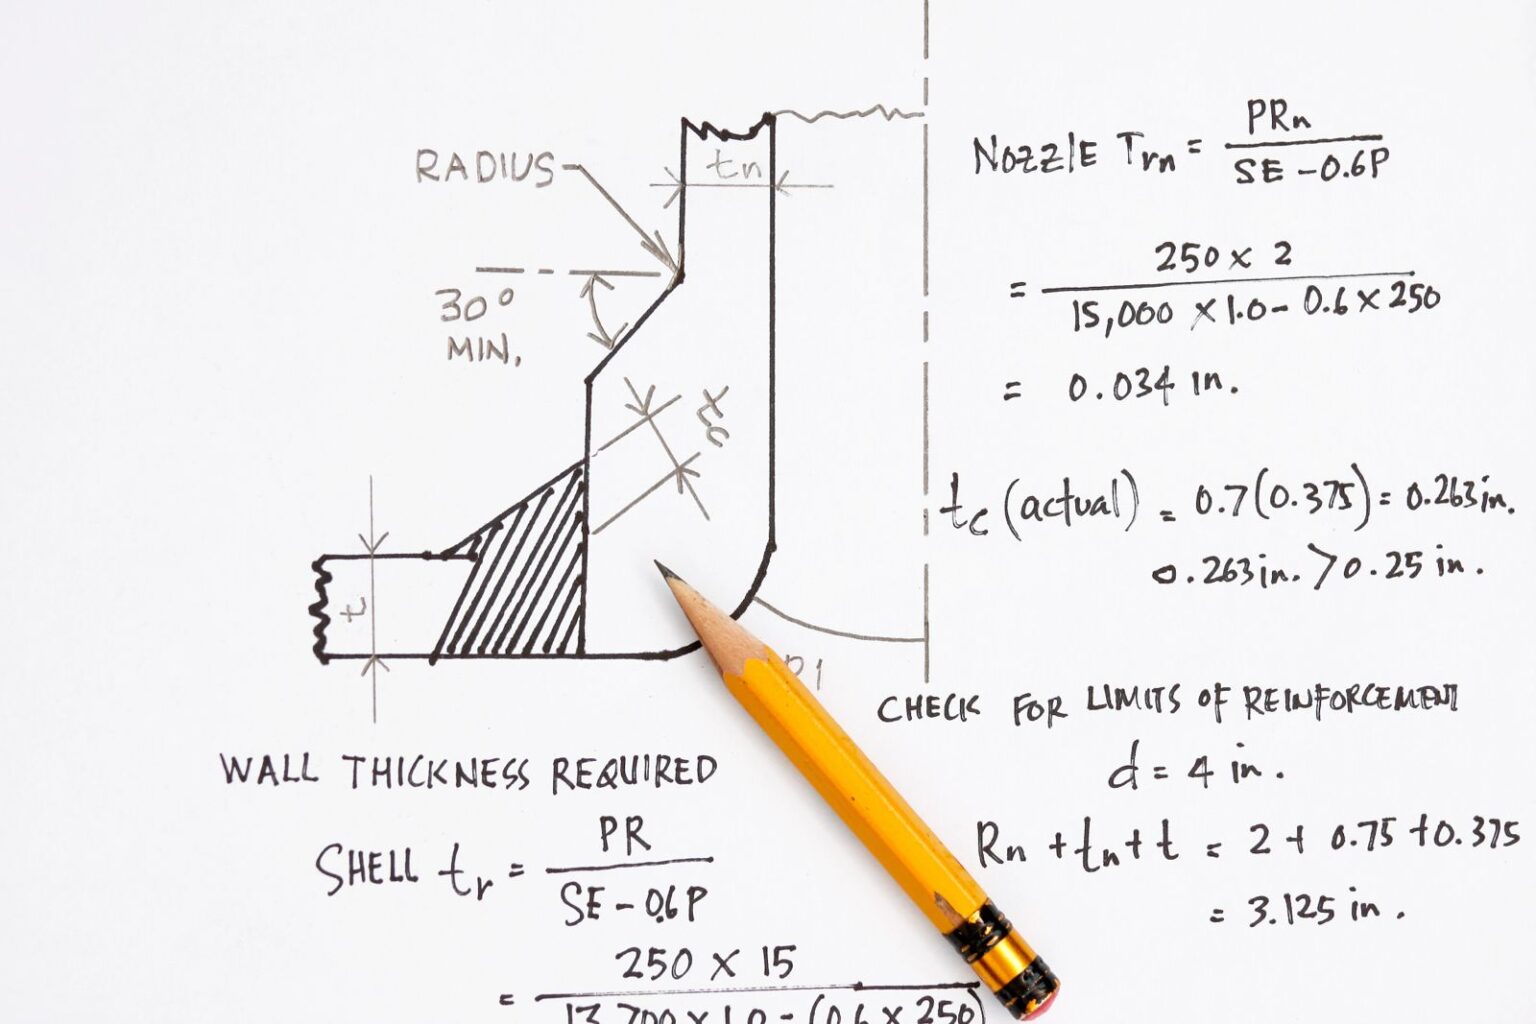 RADIUS
tn
30°
MIN.
tc
t
Nozzle Trn = PRn / SE - 0.6P
= 250 x 2 / 15,000 x 1.0 - 0.6 x 250
= 0.034 in.
tc (actual) = 0.7(0.375) = 0.263 in.
0.263 in. > 0.25 in.
CHECK FOR LIMITS OF REINFORCEMENT
d = 4 in.
Rn + tn + t = 2 + 0.75 + 0.375
= 3.125 in.
WALL THICKNESS REQUIRED
SHELL tr = PR / SE - 0.6P
= 250 x 15 / 13,700 x 1.0 - (0.6 x 250)